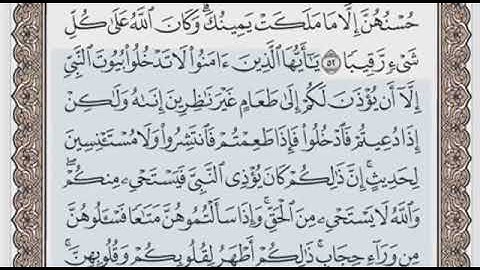 حُسْنُهُنَّ إِلَّا مَا مَلَكَتْ يَمِينُكَ ۗ وَكَانَ ٱللَّهُ عَلَىٰ كُلِّ
شَىْءٍ رَّقِيبًا ٥٢ يَـٰٓأَيُّهَا ٱلَّذِينَ ءَامَنُوا۟ لَا تَدْخُلُوا۟ بُيُوتَ ٱلنَّبِىِّ
إِلَّآ أَن يُؤْذَنَ لَكُمْ إِلَىٰ طَعَامٍ غَيْرَ نَـٰظِرِينَ إِنَىٰهُ وَلَـٰكِنْ
إِذَا دُعِيتُمْ فَٱدْخُلُوا۟ فَإِذَا طَعِمْتُمْ فَٱنتَشِرُوا۟ وَلَا مُسْتَـْٔنِسِينَ
لِحَدِيثٍ ۚ إِنَّ ذَٰلِكُمْ كَانَ يُؤْذِى ٱلنَّبِىَّ فَيَسْتَحْىِۦ مِنكُمْ ۖ
وَٱللَّهُ لَا يَسْتَحْىِۦ مِنَ ٱلْحَقِّ ۚ وَإِذَا سَأَلْتُمُوهُنَّ مَتَـٰعًا فَسْـَٔلُوهُنَّ
مِن وَرَآءِ حِجَابٍ ۚ ذَٰلِكُمْ أَطْهَرُ لِقُلُوبِكُمْ وَقُلُوبِهِنَّ ۚ